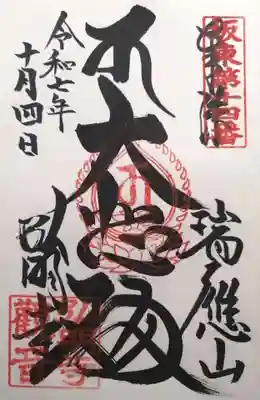 坂東第十四番
瑞應山
大悲殿
令和七年
十月四日
弘明寺
觀音